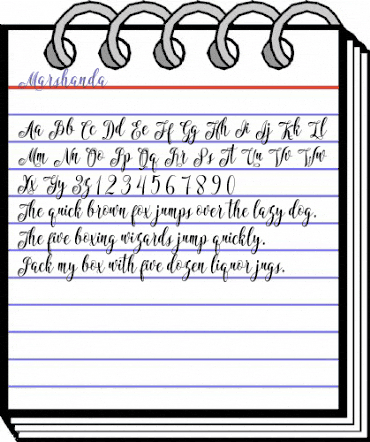 Marshanda
Aa Bb Cc Dd Ee Ff Gg Hh Ii Jj Kk Ll
Mm Nn Oo Pp Qq Rr Ss Tt Uu Vv Ww
Xx Yy Zz 1 2 3 4 5 6 7 8 9 0
The quick brown fox jumps over the lazy dog.
The five boxing wizards jump quickly.
Pack my box with five dozen liquor jugs.